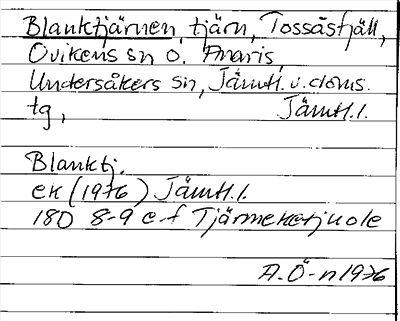 Blanktjärnen, tjärn, Tossåsfjäll,
Ovikens sn o. Anaris,
Undersåkers sn, Jämtl. v. doms.
tg, Jämtl.l.
Blanktj.
ek (1976) Jämtl.l.
18D 8-9 e-f Tjärmeketjuole
A.Ö-n 1976